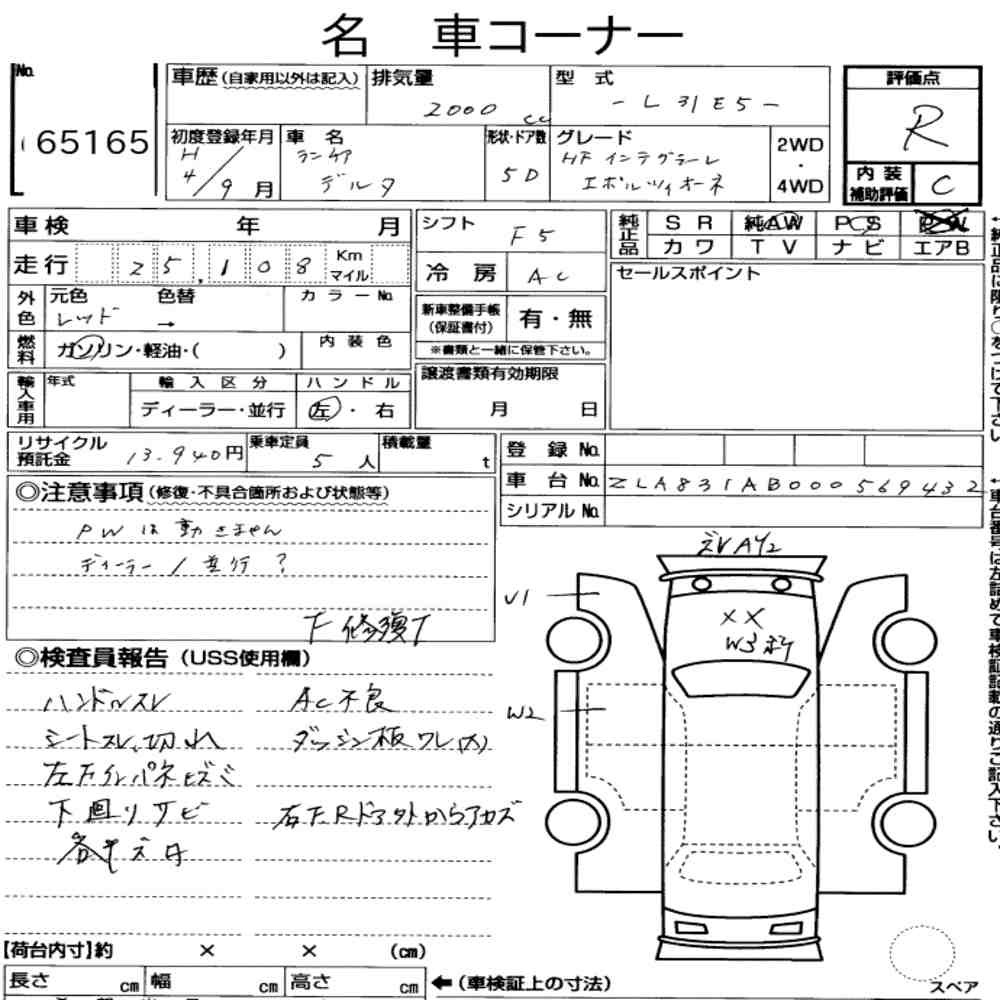 名 車コーナー
No.
65165
車歴(自家用以外は記入)
排気量
2000 cc
型 式
- L 31E5 -
評価点
R
初度登録年月
H 4/9 月
車 名
ランチア
デルタ
形状・ドア数
5D
グレード
HF インテグラーレ
エボルツィオーネ
2WD
・
4WD
内 装
補助評価
C
車検 年 月
シフト
F5
純正品
S R 純AW P S P W
カ ワ T V ナ ビ エアB
走行 25,108 Km マイル
冷 房
AC
セールスポイント
外色
元色 色替 カ ラ ー No.
レッド →
新車整備手帳
(保証書付)
有・無
※書類と一緒に保管下さい。
燃料
ガソリン・軽油・( )
内 装 色
輸入車用
年式
輸 入 区 分
ハ ン ド ル
ディーラー・並行
左 ・ 右
譲渡書類有効期限
月 日
リサイクル
預託金
13.940円
乗車定員
5 人
積載量
t
登 録 No.
車 台 No.
ZLA831AB000569432
シリアル No.
◎注意事項(修復・不具合箇所および状態等)
PWは動きません
ディーラー/並行?
F修復T
◎検査員報告(USS使用欄)
ハンドルスレ
AC不良
シートスレ、切れ
左右インパネヒズミ
下回りサビ
U1
W2
XX
【荷台内寸】約 × × (cm)
長さ cm 幅 cm 高さ cm
←(車検証上の寸法)
スペア